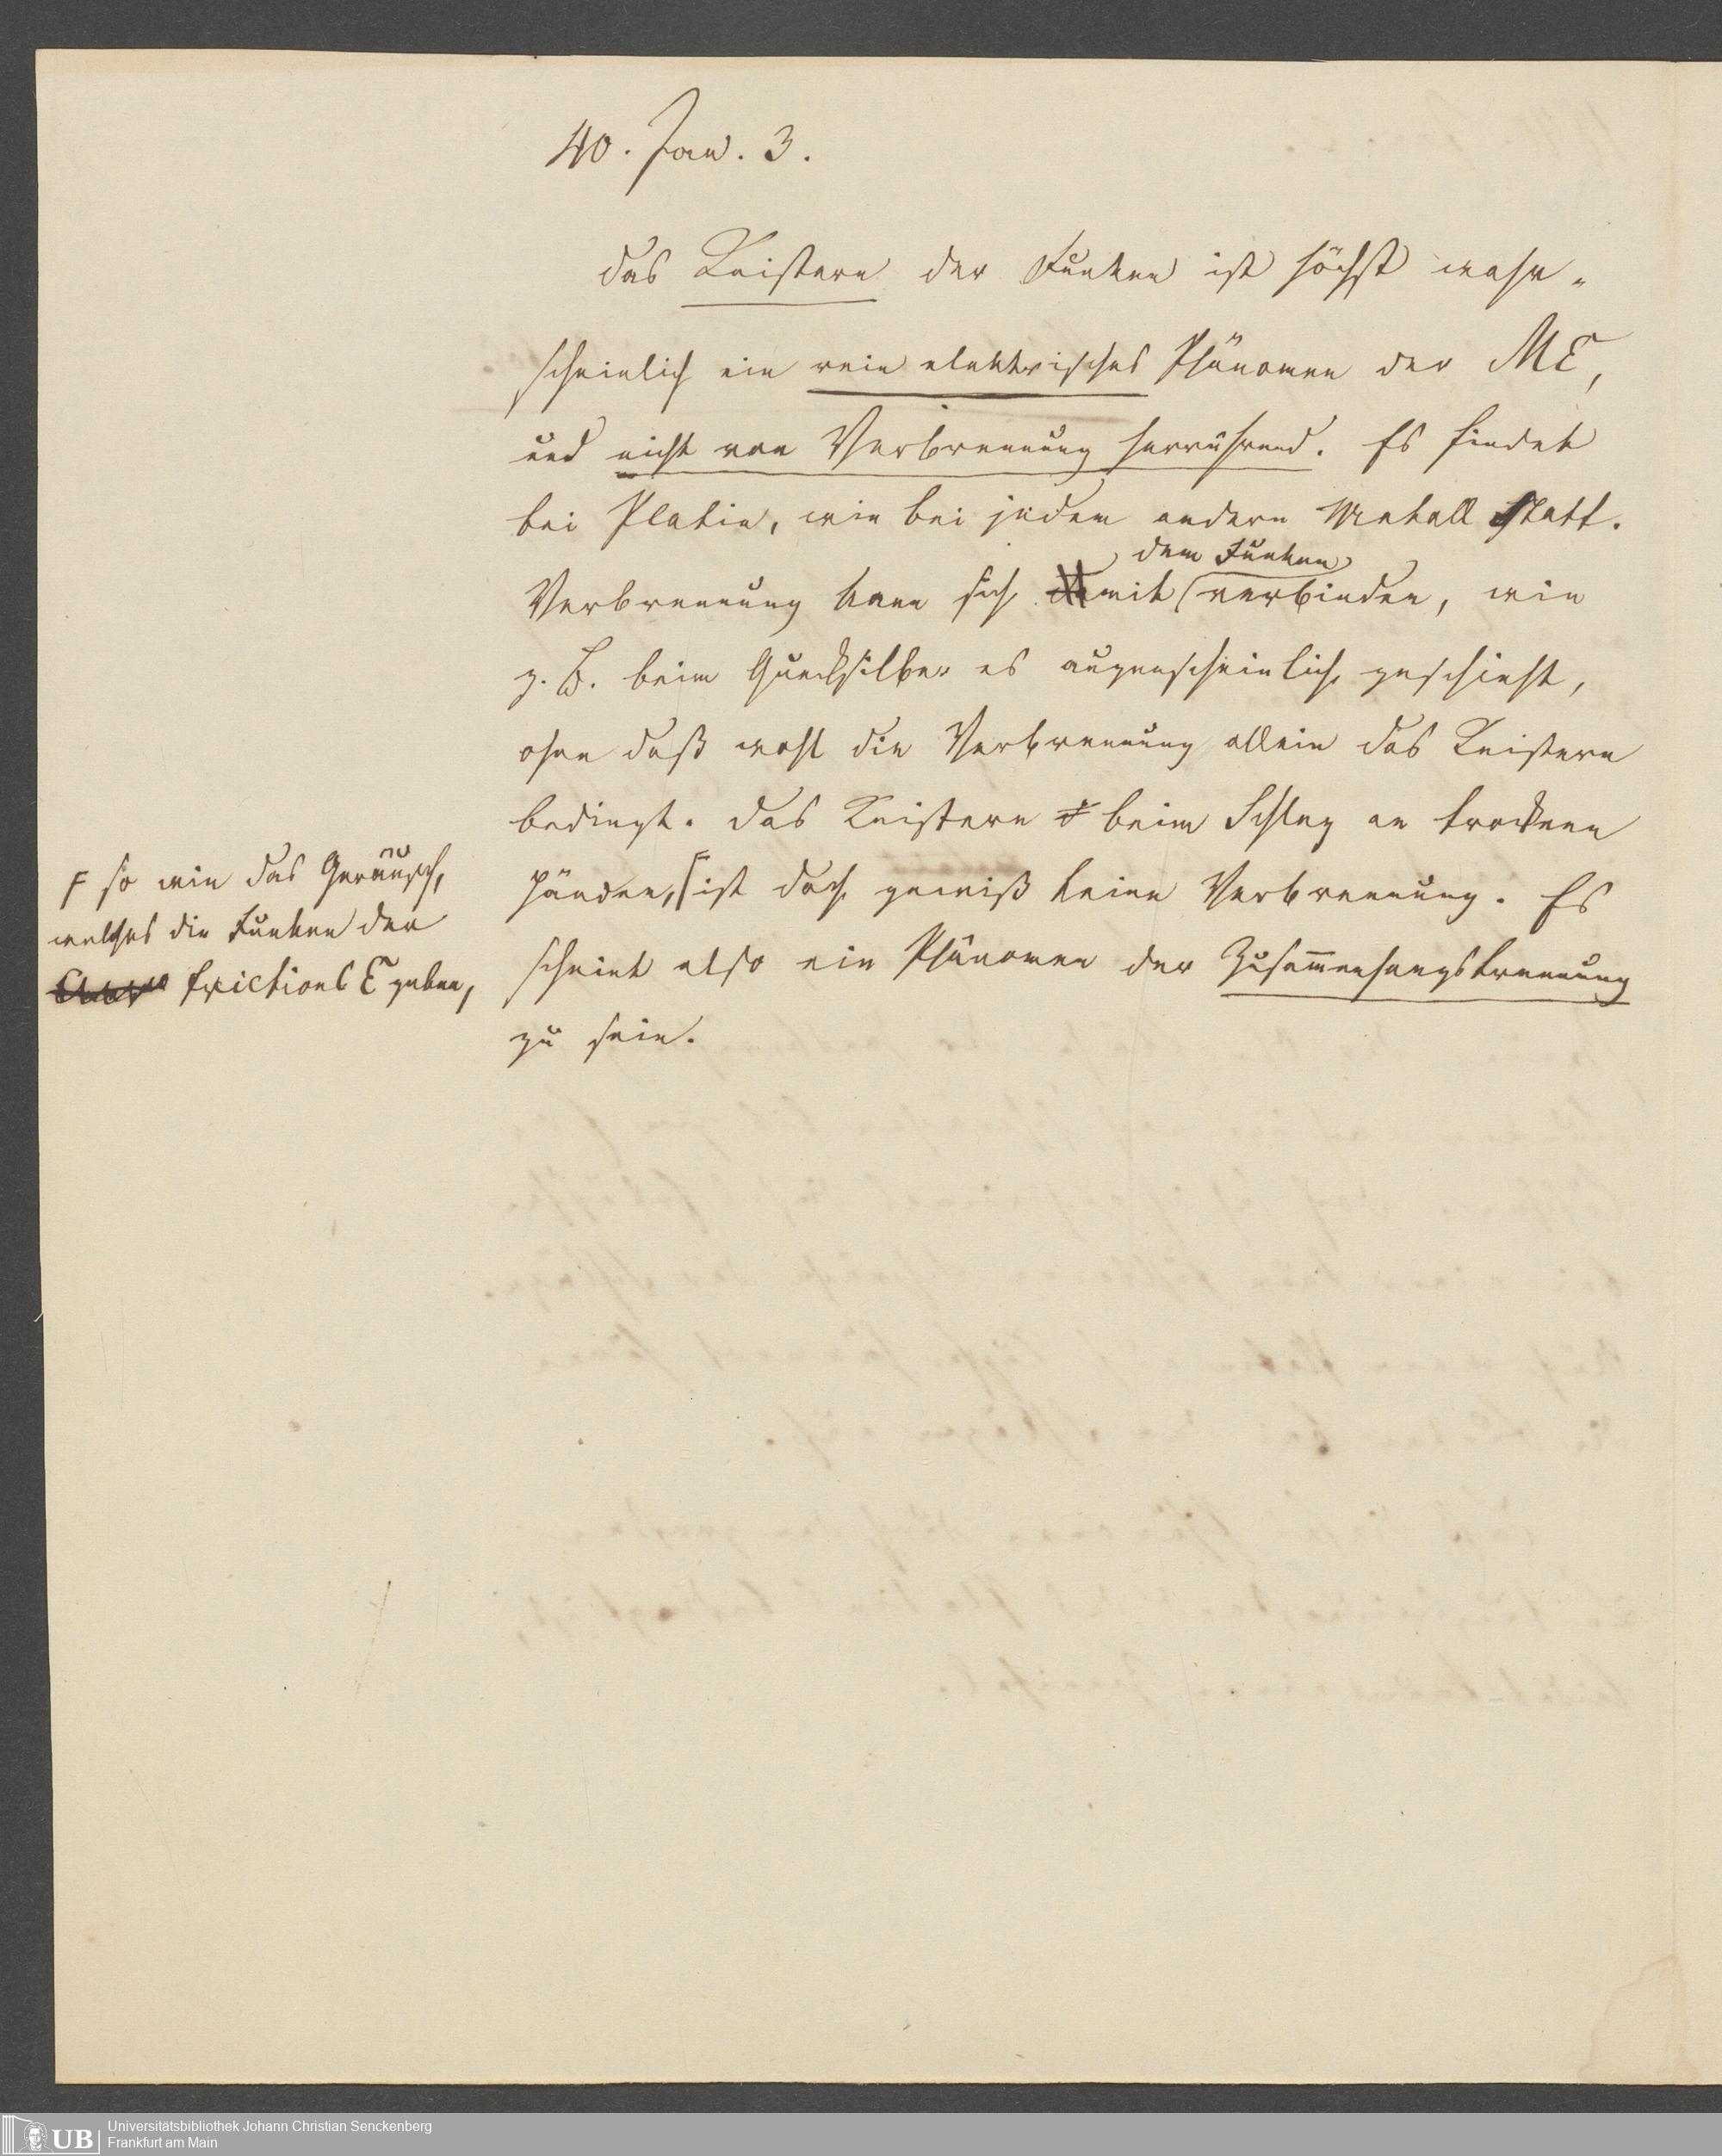 40. Jan. 3.
Das Knistern der Funken ist höchst wahr-
scheinlich ein rein elektrisches Phänomen der ME,
und nicht von Verbrennung herrührend. Es findet
bei Platin, wie bei jedem andern Metall statt.
dem Funken
Verbrennung kann sich damit verbinden, wie
z. B. beim Quecksilber es augenscheinlich geschieht,
ohne daß wohl die Verbrennung allein das Knistern
bedingt. Das Knistern beim Schlag an trockenen
Händen, ist doch gewiß keine Verbrennung. Es
scheint also ein Phänomen der Zusam̅enhangstrennung
zu sein.
F so wie das Geräusch,
welches die Funken der
frictions E geben,
UB
Universitätsbibliothek Johann Christian Senckenberg
Frankfurt am Main